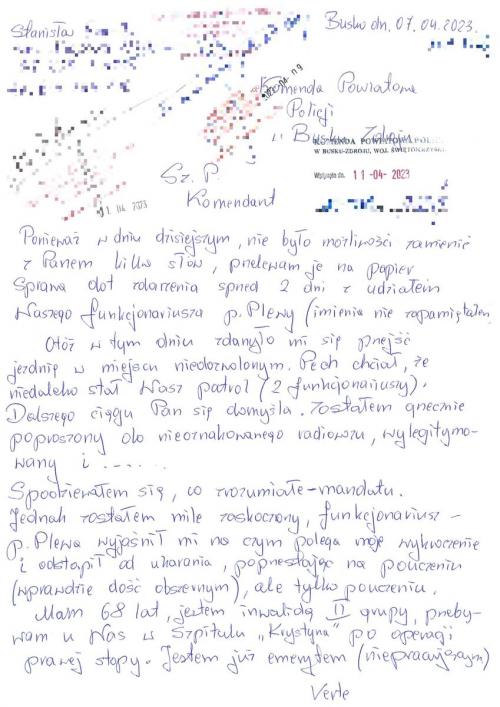 Stanisław
Busko dn. 07.04.2023.
Komenda Powiatowa
Policji
w Busku Zdroju
KOMENDA POWIATOWA POLICJI
W BUSKU-ZDROJU, WOJ. ŚWIĘTOKRZYSKIE
Wpłynęło dn. 11-04-2023
Sz. P.
11. 04. 2023
Komendant
Ponieważ w dniu dzisiejszym, nie było możliwości zamienić
z Panem kilku słów, przelewam je na papier
Sprawa dot zdarzenia sprzed 2 dni z udziałem
Waszego funkcjonariusza p. Plewy (imienia nie zapamiętałem
Otóż w tym dniu zdarzyło mi się przejść
jezdnię w miejscu niedozwolonym. Pech chciał, że
niedaleko stał Wasz patrol (2 funkcjonariuszy).
Dalszego ciągu Pan się domyśla. Zostałem grzecznie
poproszony do nieoznakowanego radiowozu, wylegitymo-
wany i ......
Spodziewałem się, co zrozumiałe - mandatu.
Jednak zostałem mile zaskoczony, funkcjonariusz -
p. Plewa wyjaśnił mi na czym polega moje wykroczenie
i odstąpił od ukarania, poprzestając na pouczeniu
(wprawdzie dość obszernym), ale tylko pouczeniu.
Mam 68 lat, jestem inwalidą II grupy, przeby-
wam u Was w Szpitalu „Krystyna" po operacji
prawej stopy. Jestem już emerytem (niepracującym)
Verte